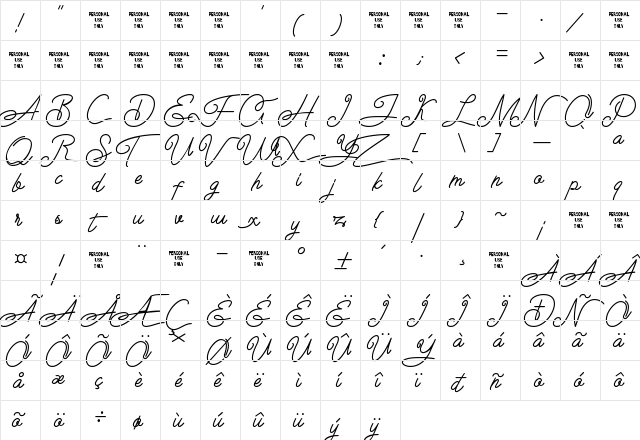 ! " PERSONAL USE ONLY PERSONAL USE ONLY PERSONAL USE ONLY PERSONAL USE ONLY ' ( ) PERSONAL USE ONLY PERSONAL USE ONLY PERSONAL USE ONLY - . / PERSONAL USE ONLY
PERSONAL USE ONLY PERSONAL USE ONLY PERSONAL USE ONLY PERSONAL USE ONLY PERSONAL USE ONLY PERSONAL USE ONLY PERSONAL USE ONLY PERSONAL USE ONLY PERSONAL USE ONLY : ; < = > PERSONAL USE ONLY PERSONAL USE ONLY
A B C D E F G H I J K L M N O P
Q R S T U V W X Y Z [ \ ] _ a
b c d e f g h i j k l m n o p q
r s t u v w x y z { | } ~ ¡ PERSONAL USE ONLY PERSONAL USE ONLY
¤ ¦ PERSONAL USE ONLY ¨ PERSONAL USE ONLY ¯ PERSONAL USE ONLY ° ± ´ · ¸ PERSONAL USE ONLY À Á Â
Ã Ä Å Æ Ç È É Ê Ë Ì Í Î Ï Ð Ñ Ò
Ó Ô Õ Ö × Ø Ù Ú Û Ü Ý à á â ã ä
å æ ç è é ê ë ì í î ï đ ñ ò ó ô
õ ö ÷ ø ù ú û ü ý ÿ